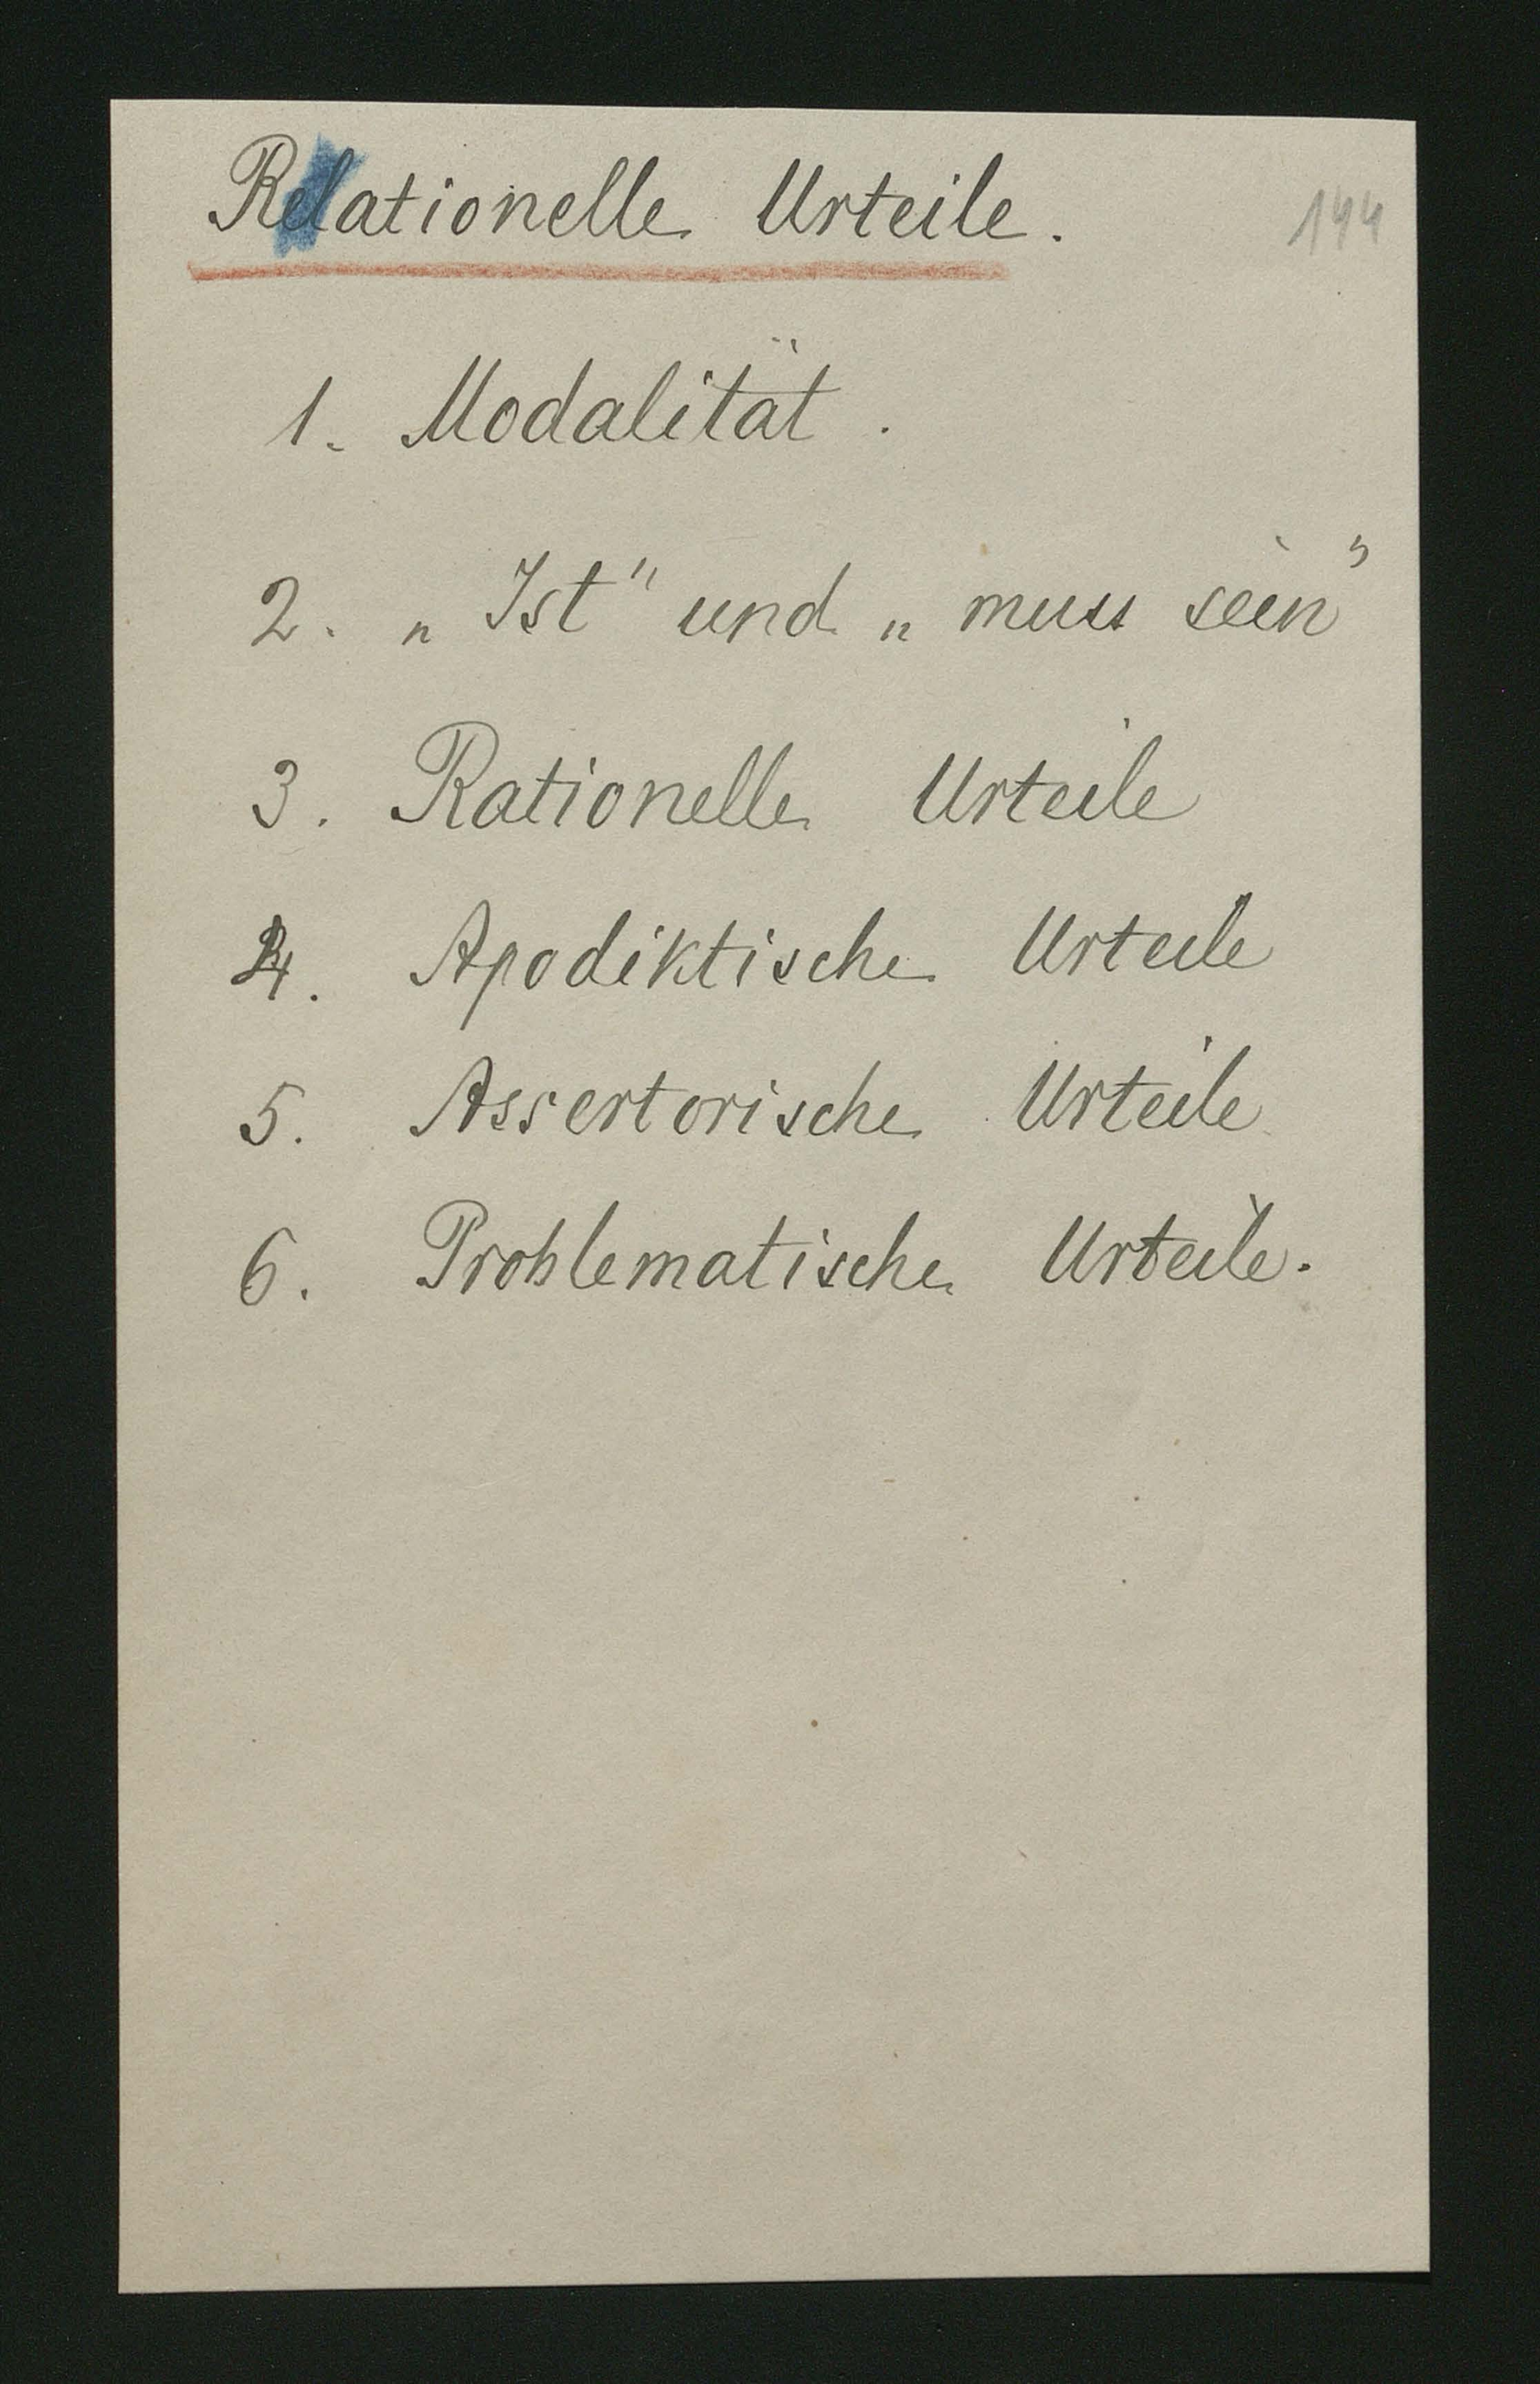 Relationelle Urteile.
144
1. Modalität.
2. „Ist" und „muss sein"
3. Rationelle Urteile
4. Apodiktische Urteile
5. Assertorische Urteile
6. Problematische Urteile.